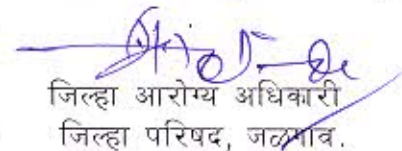 जिल्हा आरोग्य अधिकारी
जिल्हा परिषद, जळगाव.